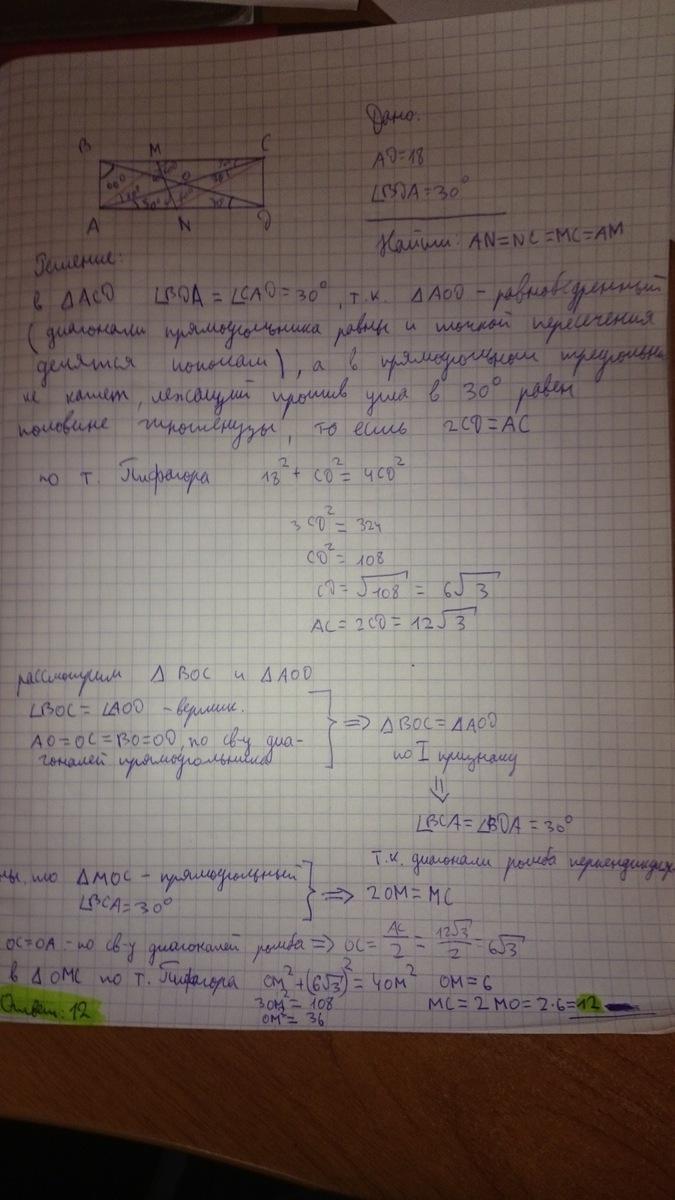 Дано:
B M C
AD=18
60° 60° O 30° 30°
∠BDA=30°
30° 60° 30°
A N D
Найти: AN=NC=MC=AM
Решение:
в ΔACD ∠BDA = ∠CAD = 30°, т.к. ΔAOD - равнобедренный
(диагонали прямоугольника равны и точкой пересечения
делятся пополам), а в прямоугольном треугольни
ке катет, лежащий против угла в 30° равен
половине гипотенузы, то есть 2CD=AC
по т. Пифагора 18² + CD² = 4CD²
3CD² = 324
CD² = 108
CD = √108 = 6√3
AC = 2CD = 12√3
рассмотрим Δ BOC и ΔAOD
∠BOC = ∠AOD - вертик.
AO=OC=BO=OD, по св-у диа-
гоналей прямоугольника
⇒ ΔBOC = ΔAOD
по I признаку
⇓
∠BCA = ∠BDA = 30°
т.к. диагонали ромба перпендикуляр
ны, то ΔMOC - прямоугольный
∠BCA = 30°
⇒ 2OM = MC
OC=OA - по св-у диагоналей ромба ⇒ OC = AC/2 = 12√3/2 = 6√3
в ΔOMC по т. Пифагора OM² + (6√3)² = 4OM² OM = 6
3OM² = 108 MC = 2MO = 2·6 = 12
Ответ: 12
OM² = 36